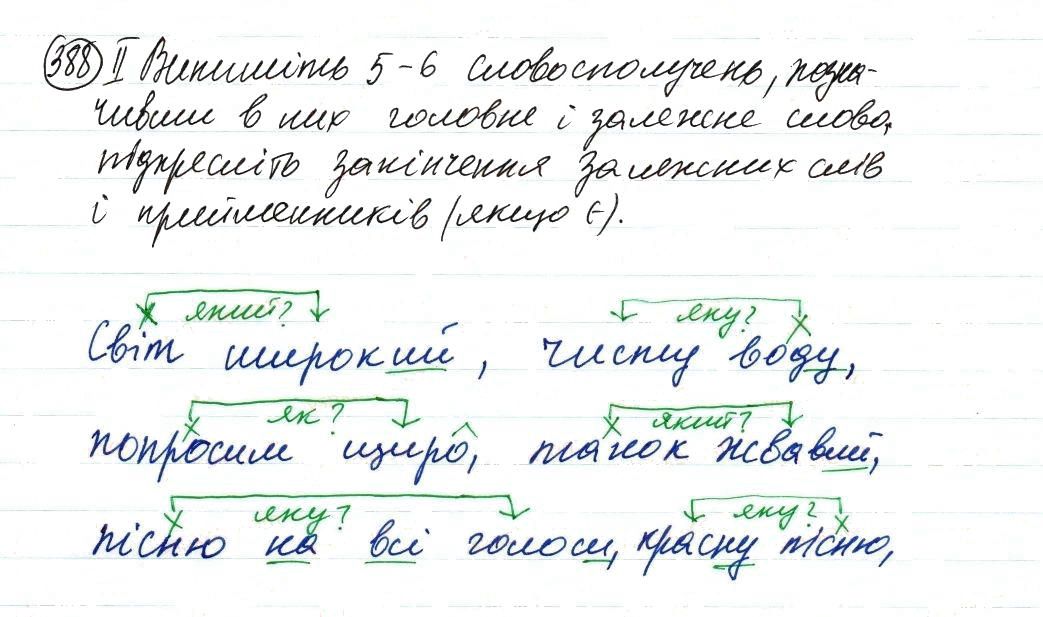 388 II Випишіть 5-6 словосполучень, позна-
чивши в них головне і залежне слово,
підкресліть закінчення залежних слів
і прийменників (якщо є).
який? яку?
Світ широкий, чисту воду,
як? який?
попросим щиро, танок жвавий,
яку? яку?
пісню на всі голоси, красну пісню,